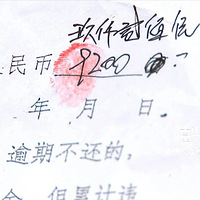 玖仟贰佰
民币 9200
年 月 日。
逾期不还的，
但累计违